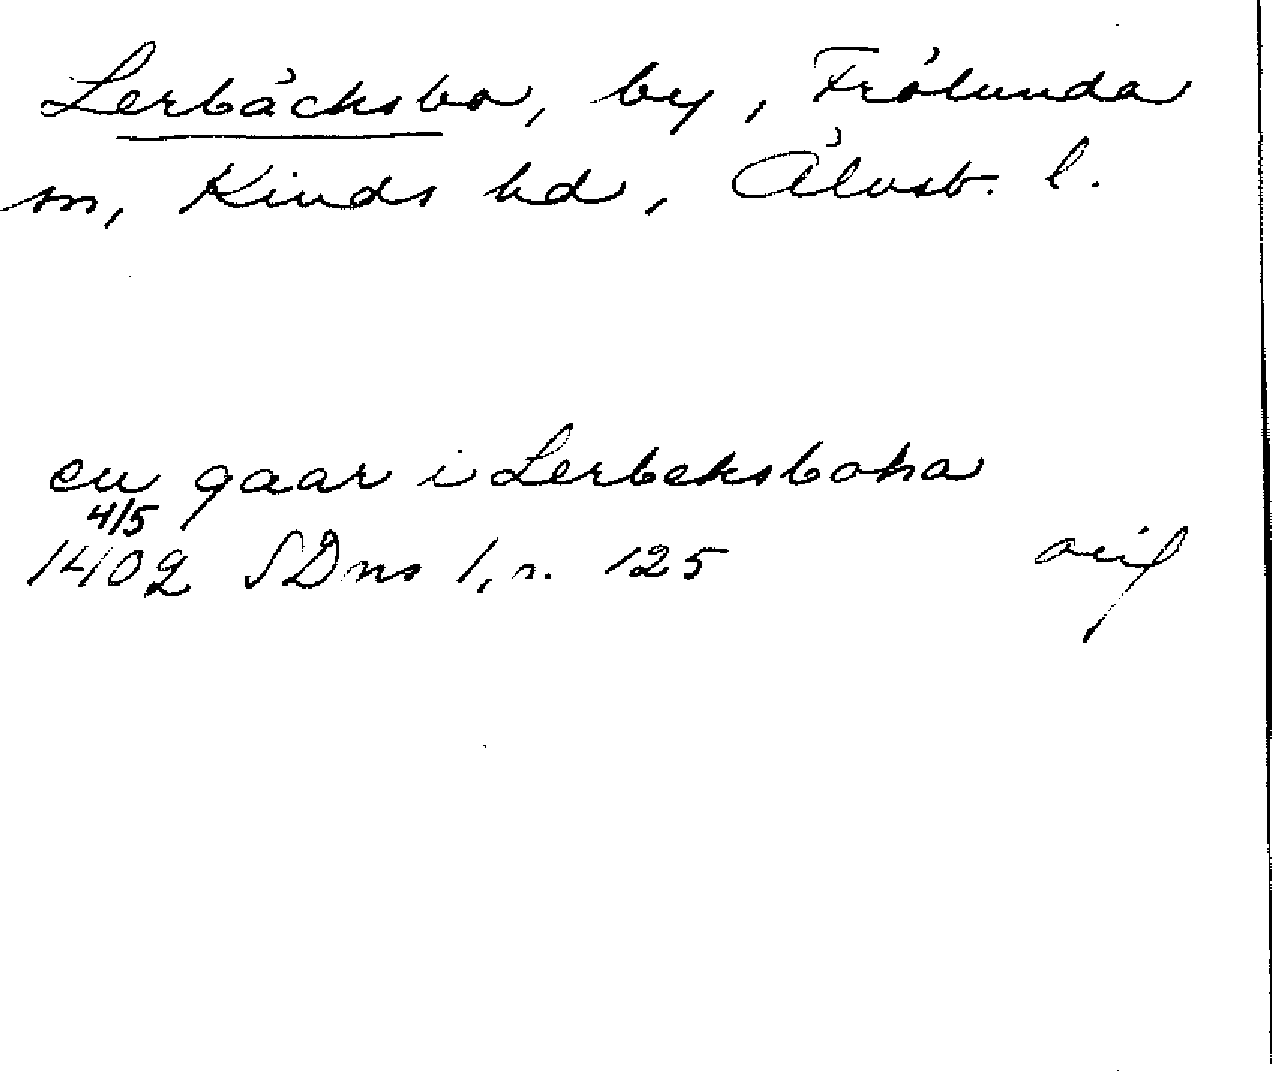 Lerbäcksbo, by, Frölunda
sn, Kinds hd, Älvsb. l.
en gaar i Lerbeksboha
4/5
1402 SDns 1, s. 125